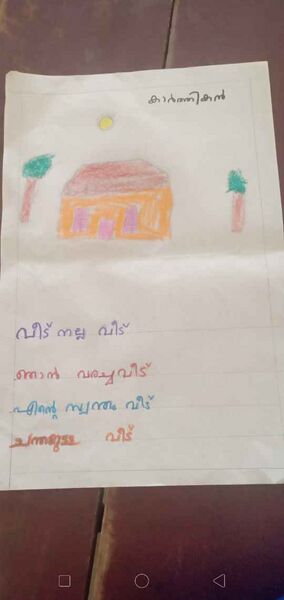 കാർത്തികൻ
വീട് നല്ല വീട്
ഞാൻ വരച്ച വീട്
എൻ്റെ സ്വന്തം വീട്
ചന്തമുള്ള വീട്